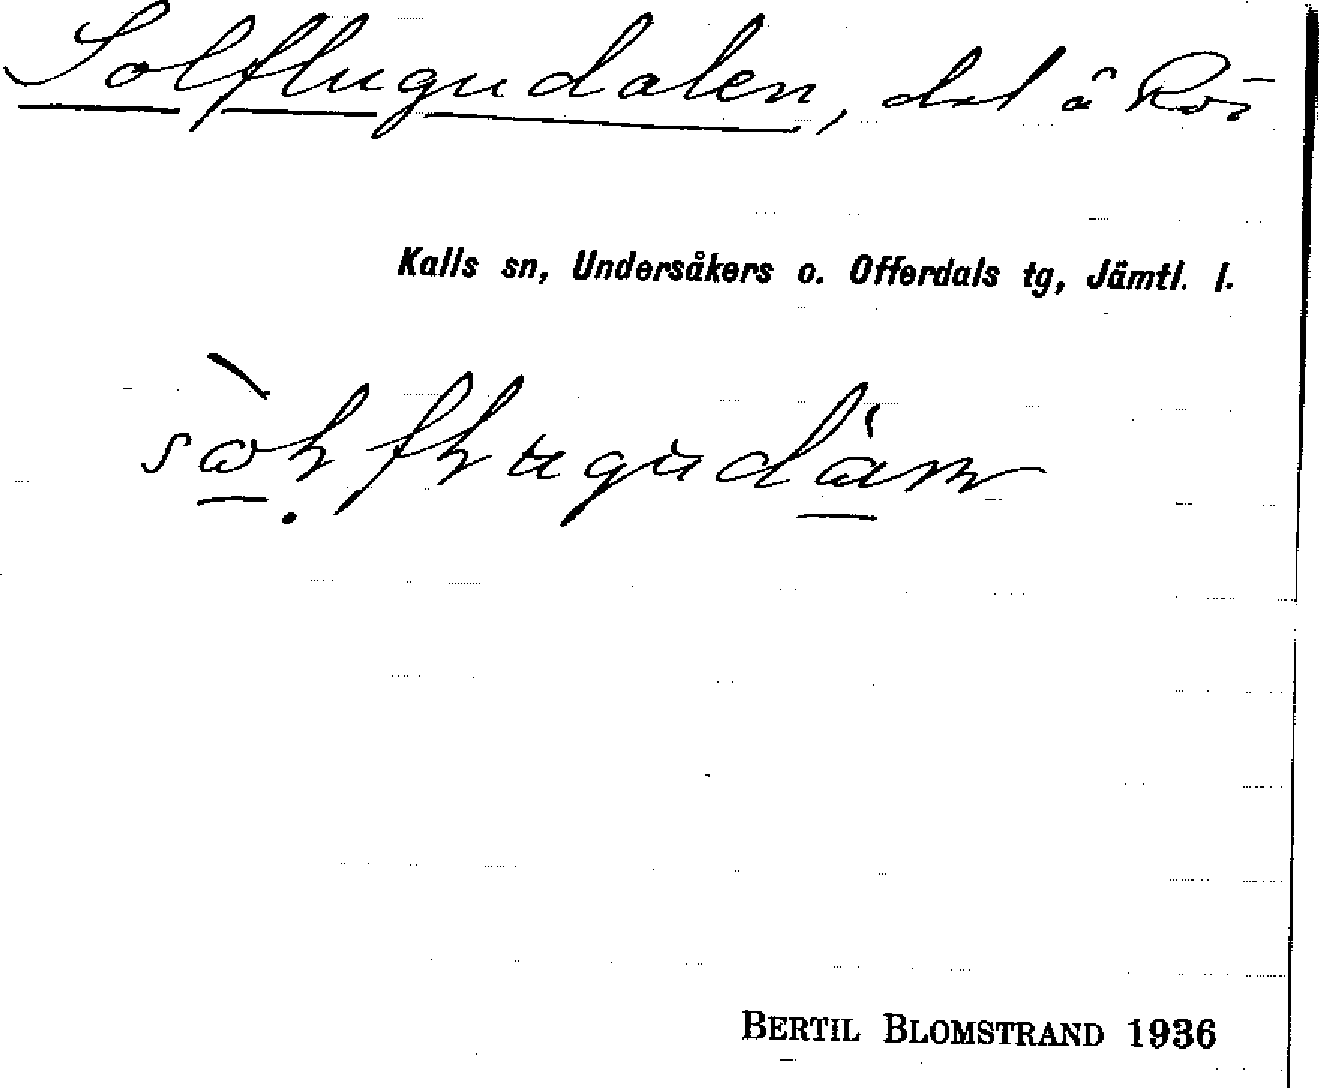 Solflugudalen, del å Röi
Kalls sn, Undersåkers o. Offerdals tg, Jämtl. l.
BERTIL BLOMSTRAND 1936